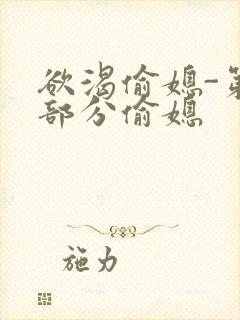 欲渴偷媳-第
部分偷媳
施力